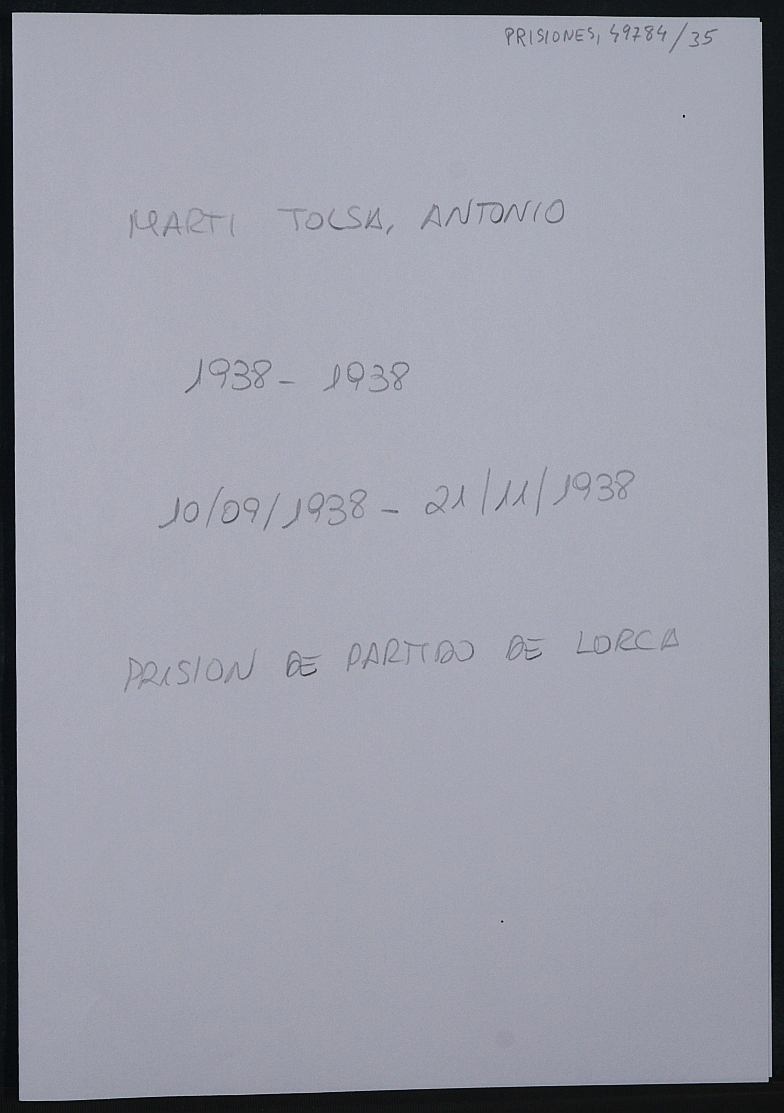 PRISIONES, 49784/35
MARTI TOLSA, ANTONIO
1938 - 1938
10/09/1938 - 21/11/1938
PRISION DE PARTIDO DE LORCA